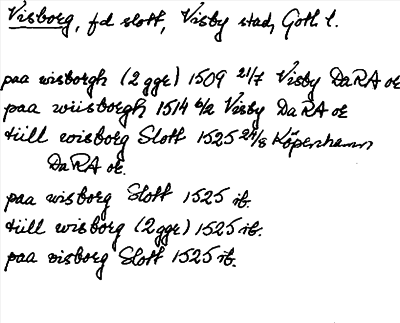 Visborg, fd slott, Visby stad, Gotl. l.
paa wisborgh (2 ggr) 1509 21/7 Visby DaRA oe
paa wiisborgh 1514 6/2 Visby DaRA oe
tiill wisborg Slott 1525 24/8 Köpenhamn
DaRA oe.
paa wisborg Slott 1525 ib.
tiill wisborg (2 ggr) 1525 ib.
paa visborg Slott 1525 ib.